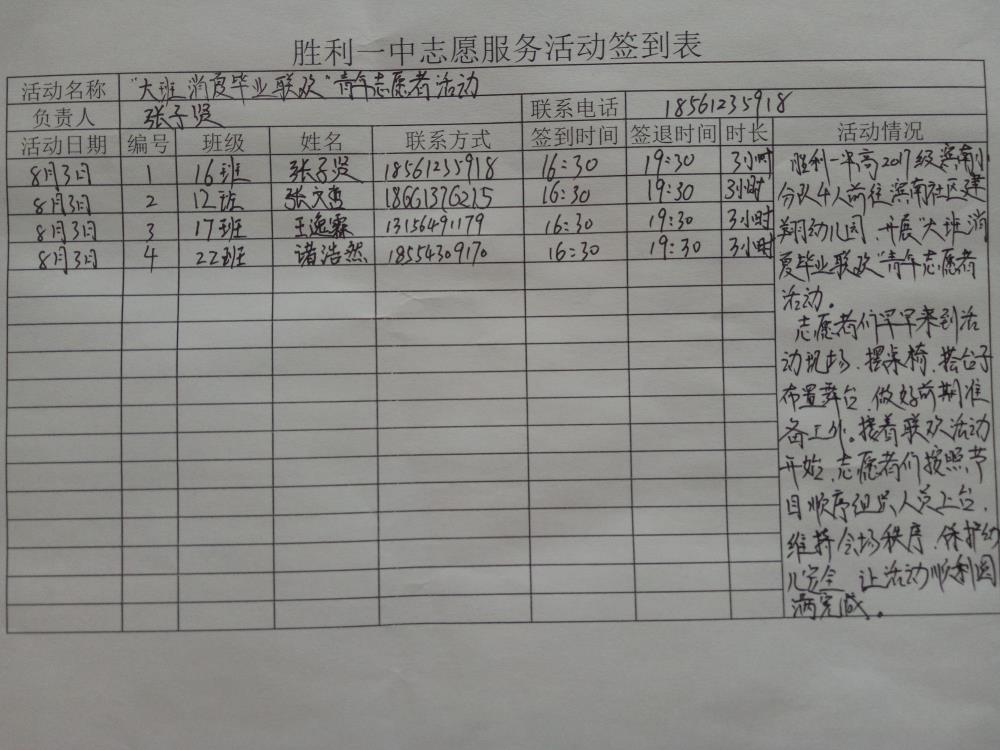 胜利一中志愿服务活动签到表
活动名称 "大班消夏毕业联欢"青年志愿者活动
负责人 张子贤 联系电话 18561235918
活动日期 编号 班级 姓名 联系方式 签到时间 签退时间 时长 活动情况
8月3日 1 16班 张子贤 18561235918 16:30 19:30 3小时
8月3日 2 12班 张文 18661376215 16:30 19:30 3小时
8月3日 3 17班 王逸霖 13156491179 16:30 19:30 3小时
8月3日 4 22班 诸浩然 18554309170 16:30 19:30 3小时
胜利一中高2017级滨南小
分队4人前往滨南社区建
翔幼儿园,开展"大班消
夏毕业联欢"青年志愿者
活动。
志愿者们早早来到活
动现场,摆桌椅,搭台子
布置舞台,做好前期准
备工作。接着联欢活动
开始,志愿者们按照节
目顺序组织人员上台,
维持会场秩序,保护幼
儿安全,让活动顺利圆
满完成。